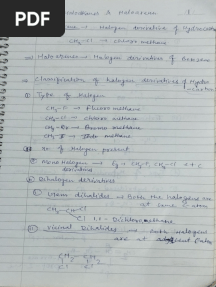 PDF
Haloalkanes & Haloarenes 1
→ Halogen derivative of Hydrocarbon
CH3-Cl → chloro methane
→ Haloarenes → Halogen derivatives of Benzene
→ Classification of halogen derivatives of Hydro
-carbon
① Type of Halogen
CH3-F → Fluoro methane
CH3-Cl → chloro methane
CH3-Br → Bromo methane
CH3-I → Iodo methane
② no. of Halogen present
Mono Halogen → Eg → CH3-F, CH3-Cl
derivatives
Dihalogen derivatives
dihalides → Both the halogens are
at same C atom
CH3-CH-Cl
Cl 1,1-Dichloroethane
Vicinal Dihalides → both halogens
are at adjacent C atom
CH2-CH2
Cl Cl